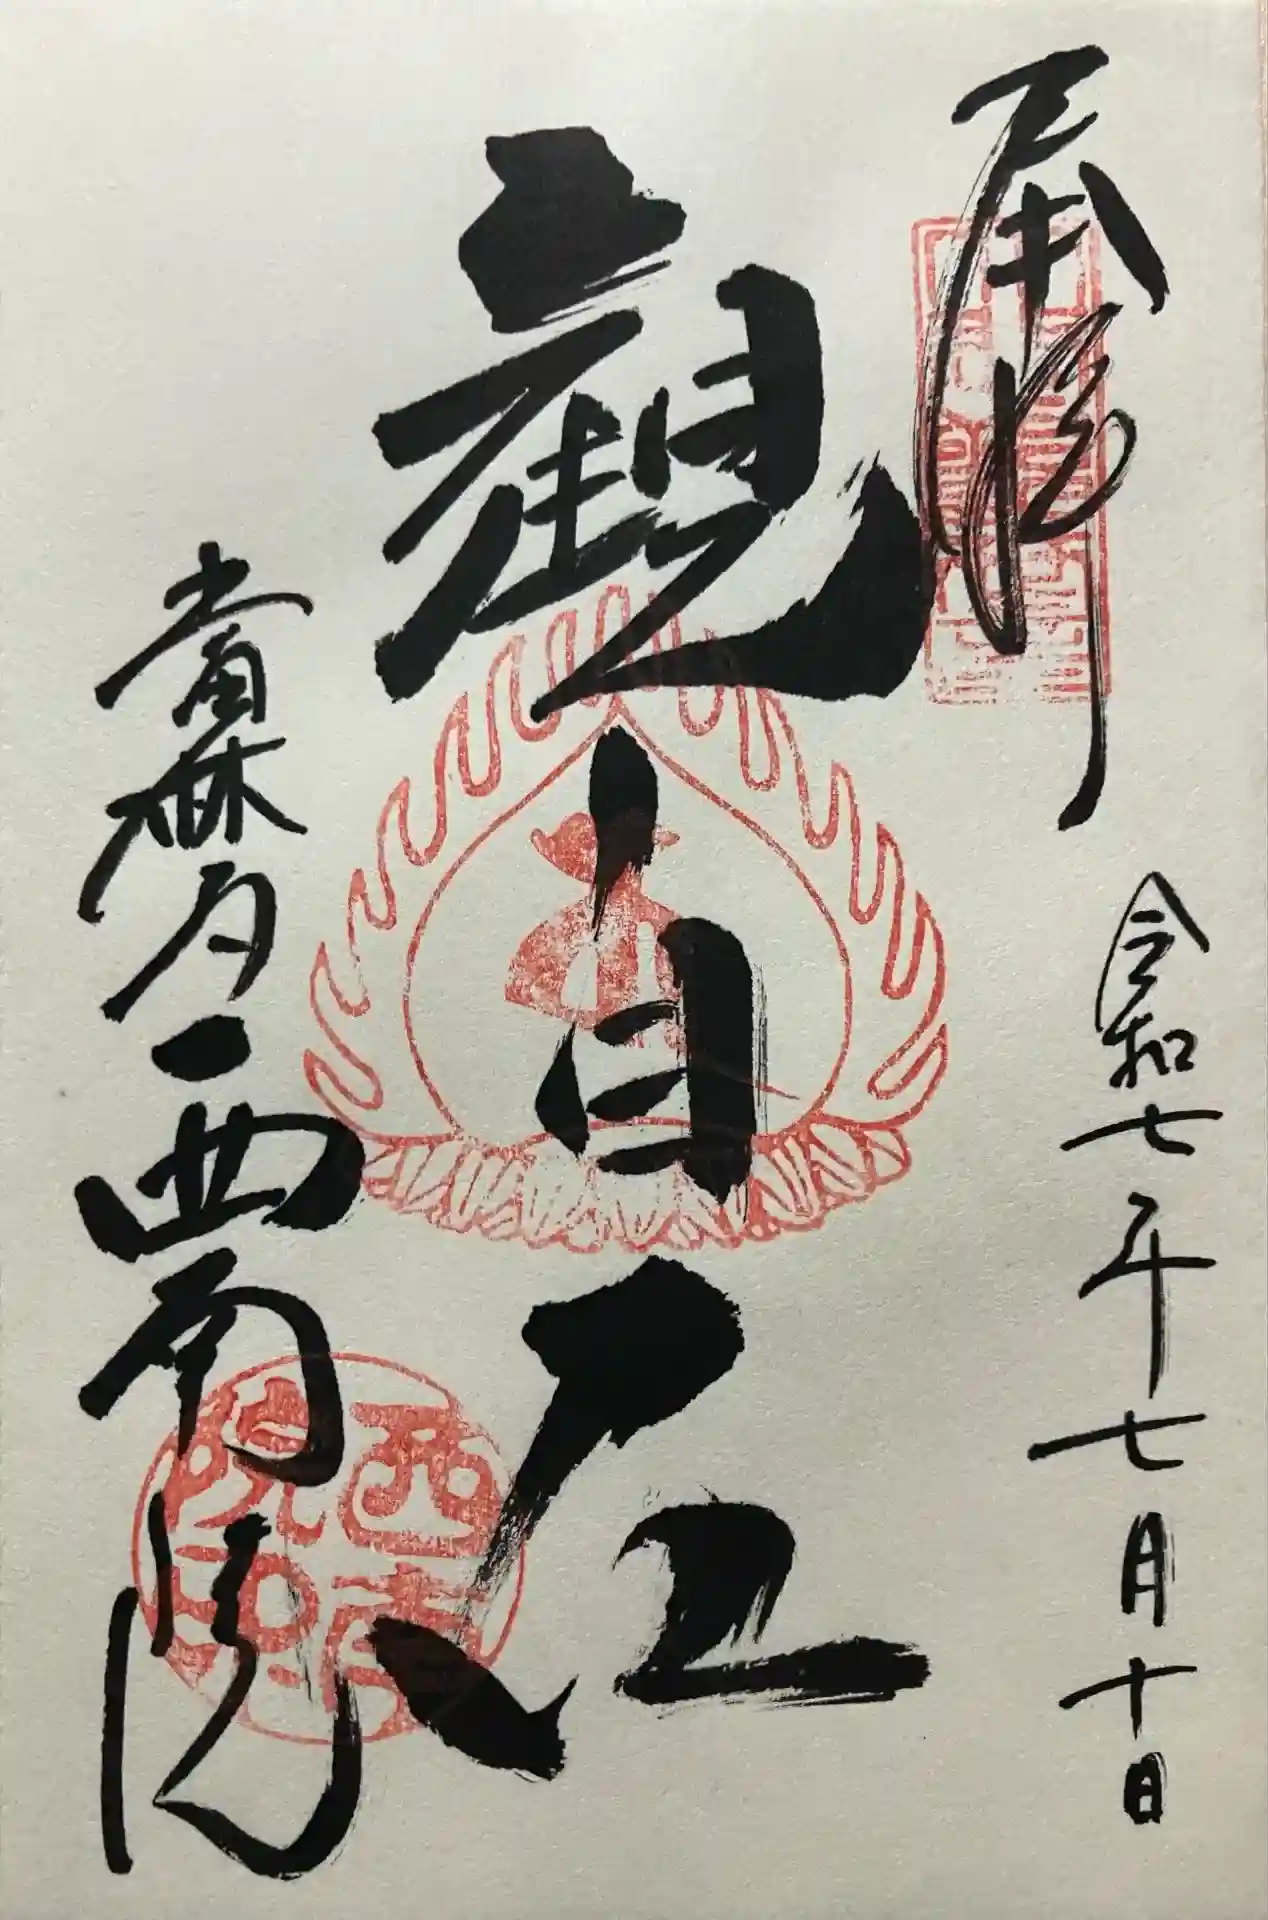 奉拝
令和七年七月十日
観自在
當麻寺西南院
西南院印